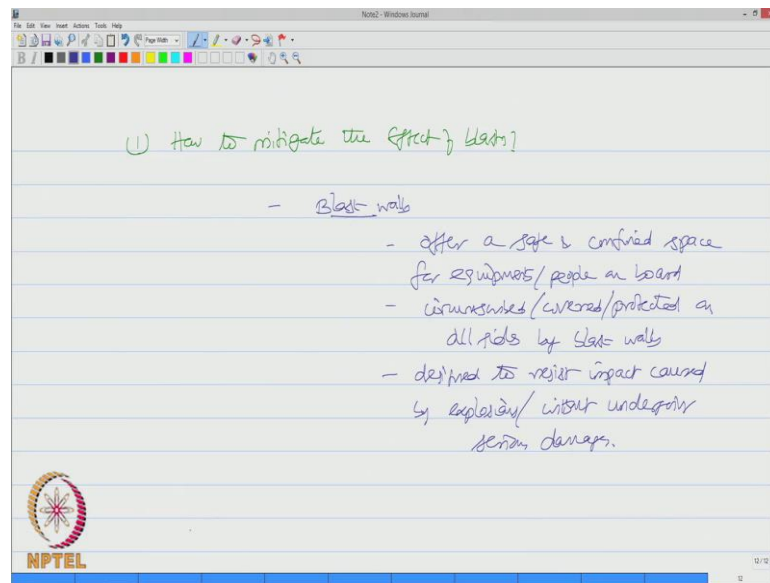 Note2 - Windows Journal
File Edit View Insert Actions Tools Help
Page Width
B I
(1) How to mitigate the effect of blasts?
- Blast walls
- offer a safe & confined space
for equipment/people on board
- circumscribed/covered/protected on
all sides by blast walls
- designed to resist impact caused
by explosion/ without undergoing
serious damages.
NPTEL
12/12
12